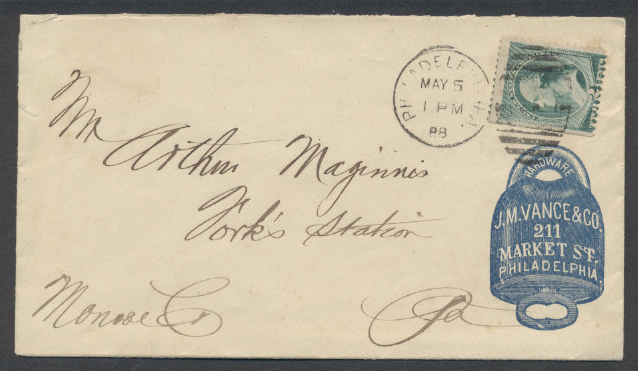 PHILADELPHIA
MAY 5
1 PM
88
HARDWARE
J.M. VANCE & CO.
211
MARKET ST.
PHILADELPHIA
Mr Arthur Maginnis
York's Station
Monroe Co Pa